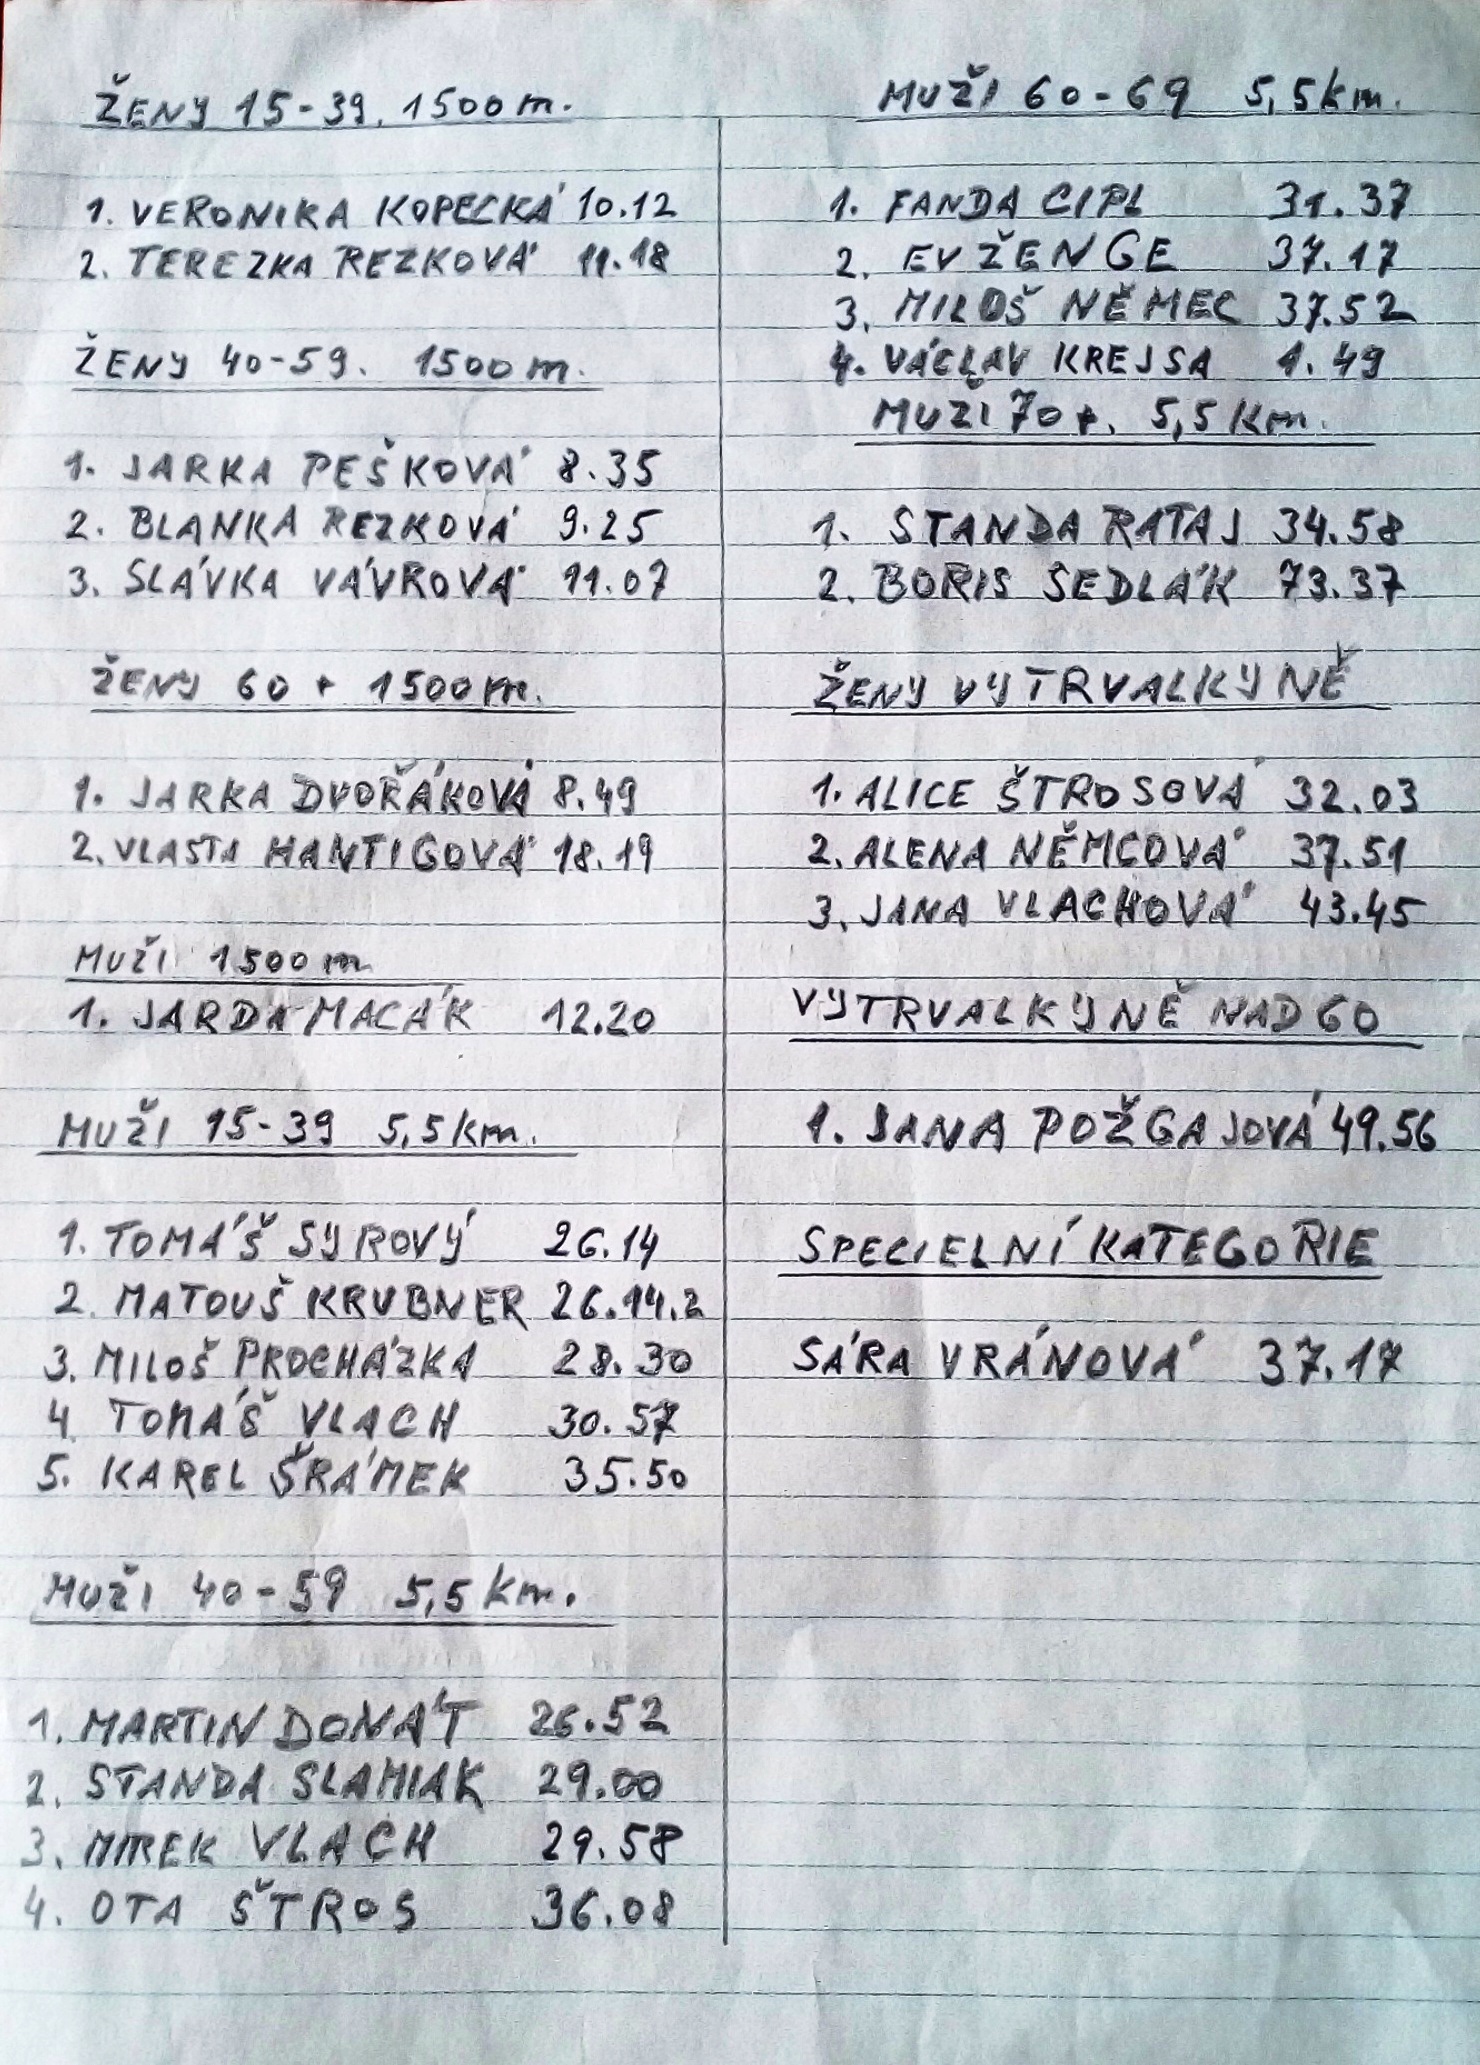 ŽENY 15-39. 1500 m.
1. VERONIKA KOPECKÁ 10.12
2. TEREZKA REZKOVÁ 11.18
ŽENY 40-59. 1500 m.
1. JARKA PEŠKOVÁ 8.35
2. BLANKA REZKOVÁ 9.25
3. SLÁVKA VÁVROVÁ 11.07
ŽENY 60 + 1500 m.
1. JARKA DVOŘÁKOVÁ 8.49
2. VLASTA HANTIGOVÁ 18.19
MUŽI 1500 m
1. JARDA MACÁK 12.20
MUŽI 15-39 5,5 km.
1. TOMÁŠ SYROVÝ 26.14
2. MATOUŠ KRUBNER 26.14.2
3. MILOŠ PROCHÁZKA 28.30
4. TOMÁŠ VLACH 30.57
5. KAREL ŠRÁMEK 35.50
MUŽI 40-59 5,5 km.
1. MARTIN DONÁT 26.52
2. STANDA SLAMIAK 29.00
3. MIREK VLACH 29.58
4. OTA ŠTROS 36.08
MUŽI 60-69 5,5 km.
1. FANDA CIPL 31.37
2. EVŽEN GE 37.17
3. MILOŠ NĚMEC 37.52
4. VÁCLAV KREJSA 1.49
MUŽI 70+. 5,5 Km.
1. STANDA RATAJ 34.58
2. BORIS SEDLÁK 73.37
ŽENY VYTRVALKYNĚ
1. ALICE ŠTROSOVÁ 32.03
2. ALENA NĚMCOVÁ 37.51
3. JANA VLACHOVÁ 43.45
VYTRVALKYNĚ NAD 60
1. JANA POŽGAJOVÁ 49.56
SPECIELNÍ KATEGORIE
SÁRA VRÁNOVÁ 37.17